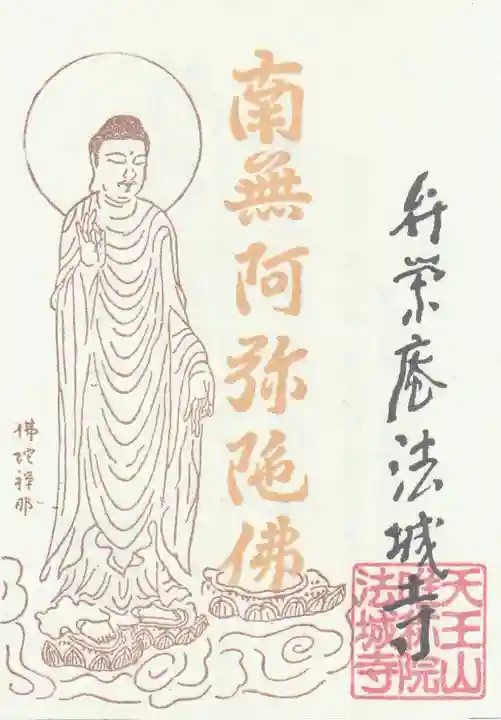 弁栄庵法城寺
南無阿弥陀佛
佛陀禅那
天王山
唯称院
法城寺